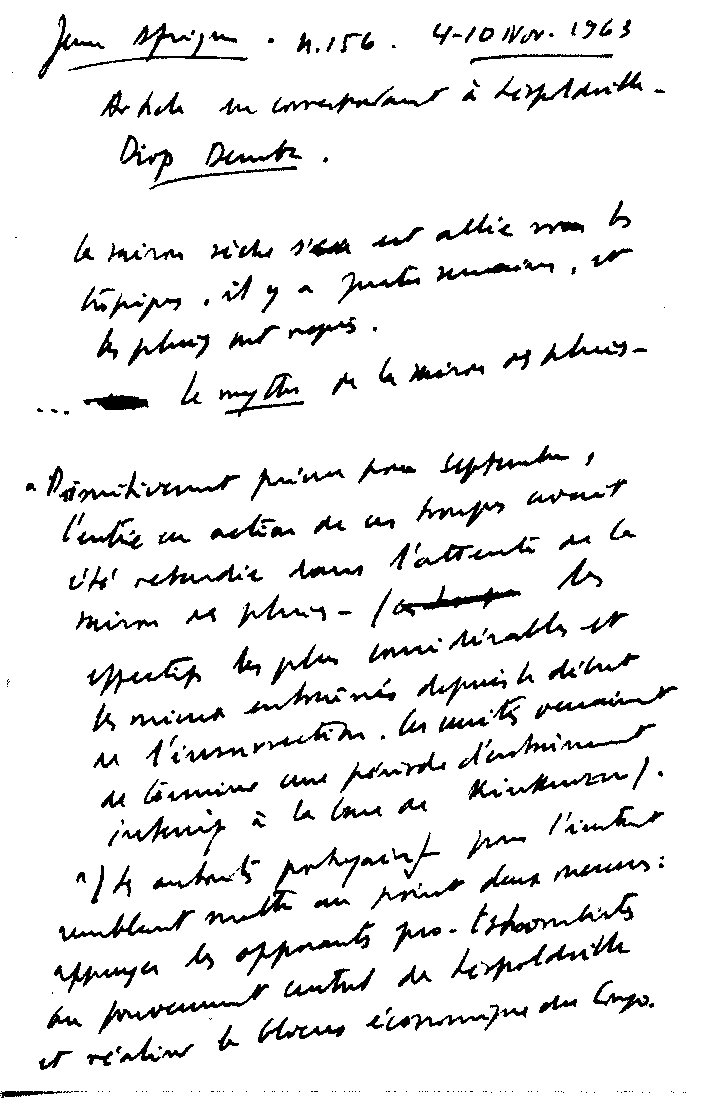 Jeune Afrique. n.156. 4-10 Nov. 1963
Article du correspondant à Léopoldville-
Diop Demba.
la saison sèche s'en est allée sous les
tropiques, il y a quatre semaines, et
les pluies ont repris.
... le mythe de la saison des pluies-
"Primitivement prévue pour septembre,
l'entrée en action de ces troupes avait
été retardée dans l'attente de la
saison des pluies- (les
effectifs les plus considérables et
les mieux entraînés depuis le début
de l'insurrection. Ces unités venaient
de terminer une période d'entraînement
intensif à la base de Kinkuzu).
") Les autorités portugaises pour l'instant
semblent mettre au point deux mesures:
appuyer les opposants pro-Tshombistes
au gouvernement central de Léopoldville
et réaliser le blocus économique du Congo.